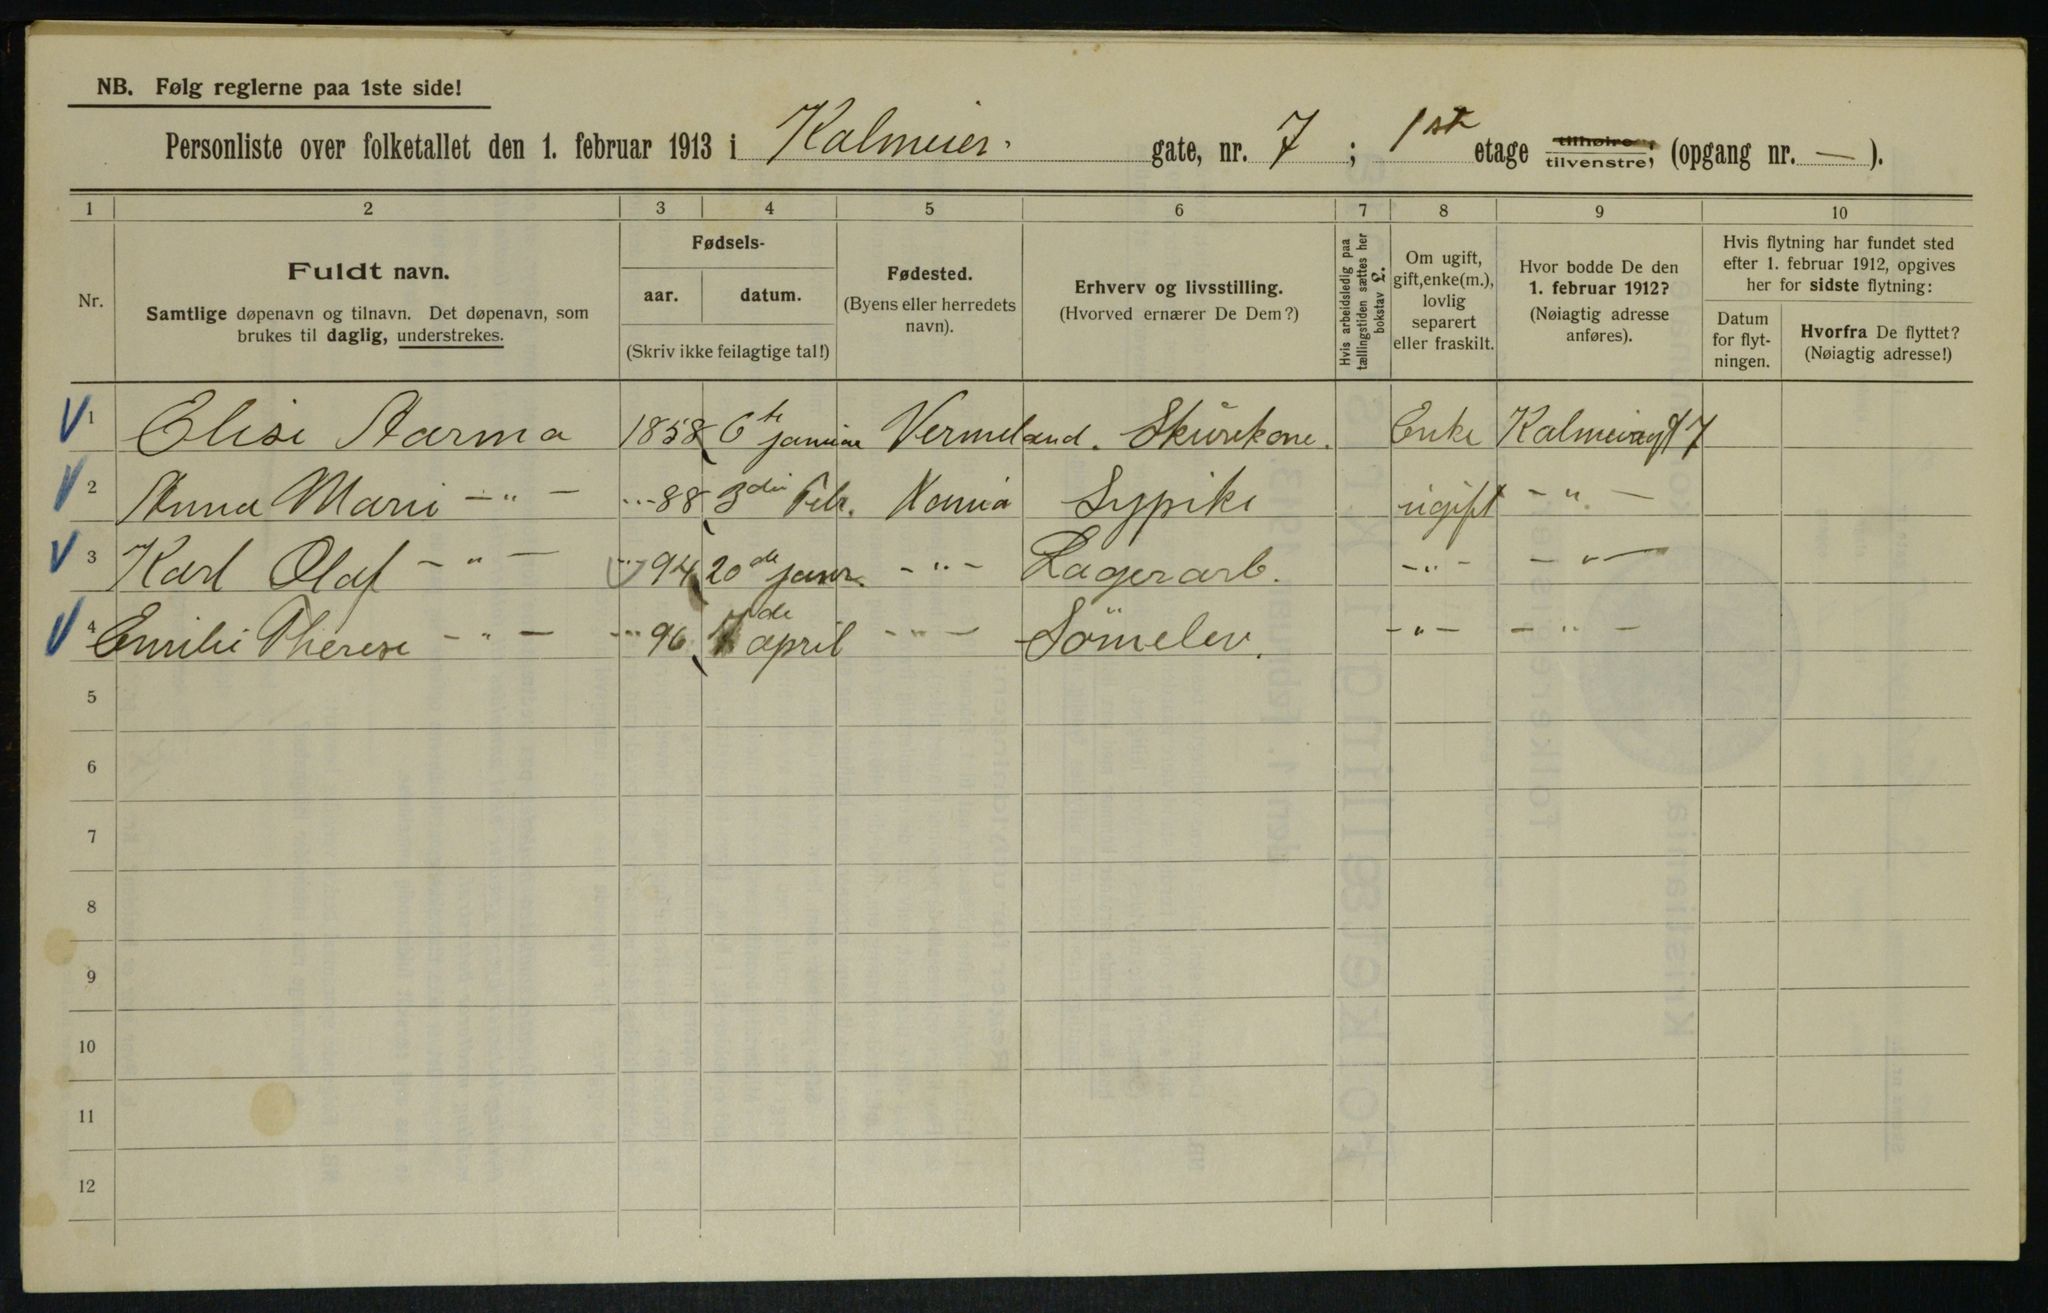 NB. Følg reglerne paa 1ste side!
Personliste over folketallet den 1. februar 1913 i Kalmeier gate, nr. 7 ; 1ste etage tilhøire, tilvenstre, (opgang nr. — ).
1 2 3 4 5 6 7 8 9 10
Nr.
Fuldt navn.
Samtlige døpenavn og tilnavn. Det døpenavn, som
brukes til daglig, understrekes.
Fødsels-
aar. datum.
(Skriv ikke feilagtige tal!)
Fødested.
(Byens eller herredets
navn).
Erhverv og livsstilling.
(Hvorved ernærer De Dem?)
Hvis arbeidsledig paa
tællingstiden sættes her
bokstav L.
Om ugift,
gift, enke(m.),
lovlig
separert
eller fraskilt.
Hvor bodde De den
1. februar 1912?
(Nøiagtig adresse
anføres).
Hvis flytning har fundet sted
efter 1. februar 1912, opgives
her for sidste flytning:
Datum
for flyt-
ningen.
Hvorfra De flyttet?
(Nøiagtig adresse!)
1 Elise Aarma 1858 6te januar Vermeland. Skurekone. Enke Kalmeiergt 7
2 Anna Marie — " — " 88 3die Febr. Kania Sypike ugift — " —
3 Karl Olaf — " — " 94 20de janr. — " — Lagerarb. — " — — " —
4 Emilie Therese — " — " 96 de april — " — Sömelev. — " — — " —
5
6
7
8
9
10
11
12